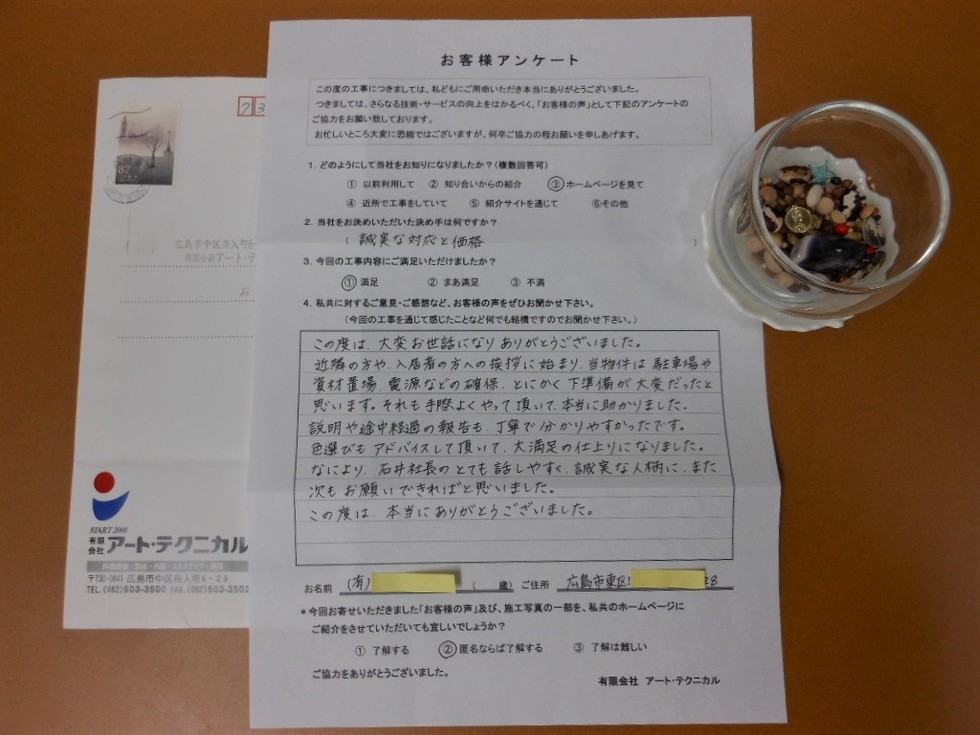 お客様アンケート
この度の工事につきましては、私どもにご用命いただき本当にありがとうございました。
つきましては、さらなる技術・サービスの向上をはかるべく、「お客様の声」として下記のアンケートの
ご協力をお願い致しております。
お忙しいところ大変に恐縮ではございますが、何卒ご協力の程お願いを申しあげます。
1. どのようにして当社をお知りになりましたか？(複数回答可)
① 以前利用して ② 知り合いからの紹介 ③ ホームページを見て
④ 近所で工事をしていて ⑤ 紹介サイトを通じて ⑥その他
2. 当社をお決めいただいた決め手は何ですか？
( 誠実な対応と価格 )
3. 今回の工事内容にご満足いただけましたか？
① 満足 ② まあ満足 ③ 不満
4. 私共に対するご意見・ご感想など、お客様の声をぜひお聞かせ下さい。
(今回の工事を通じて感じたことなど何でも結構ですのでお聞かせ下さい。)
この度は、大変お世話になりありがとうございました。
近隣の方や、入居者の方への挨拶に始まり、当物件は駐車場や
資材置場、電源などの確保、とにかく下準備が大変だったと
思います。それも手際よくやって頂いて、本当に助かりました。
説明や途中経過の報告も、丁寧で分かりやすかったです。
色選びもアドバイスして頂いて、大満足の仕上りになりました。
なにより、石井社長のとても話しやすく、誠実な人柄に、また
次もお願いできればと思いました。
この度は、本当にありがとうございました。
お名前 (有) ( 歳) ご住所 広島市東区 28
*今回お寄せいただきました「お客様の声」及び、施工写真の一部を、私共のホームページに
ご紹介をさせていただいても宜しいでしょうか？
① 了解する ② 匿名ならば了解する ③ 了解は難しい
ご協力をありがとうございました。
有限会社 アート・テクニカル
82
7 3
広島市中区舟入町6
有限会社 アート・テ
START 2000
有限会社 アート・テクニカル
〒730-0841 広島市中区舟入町6-28
TEL.(082)503-3500 FAX.(082)503